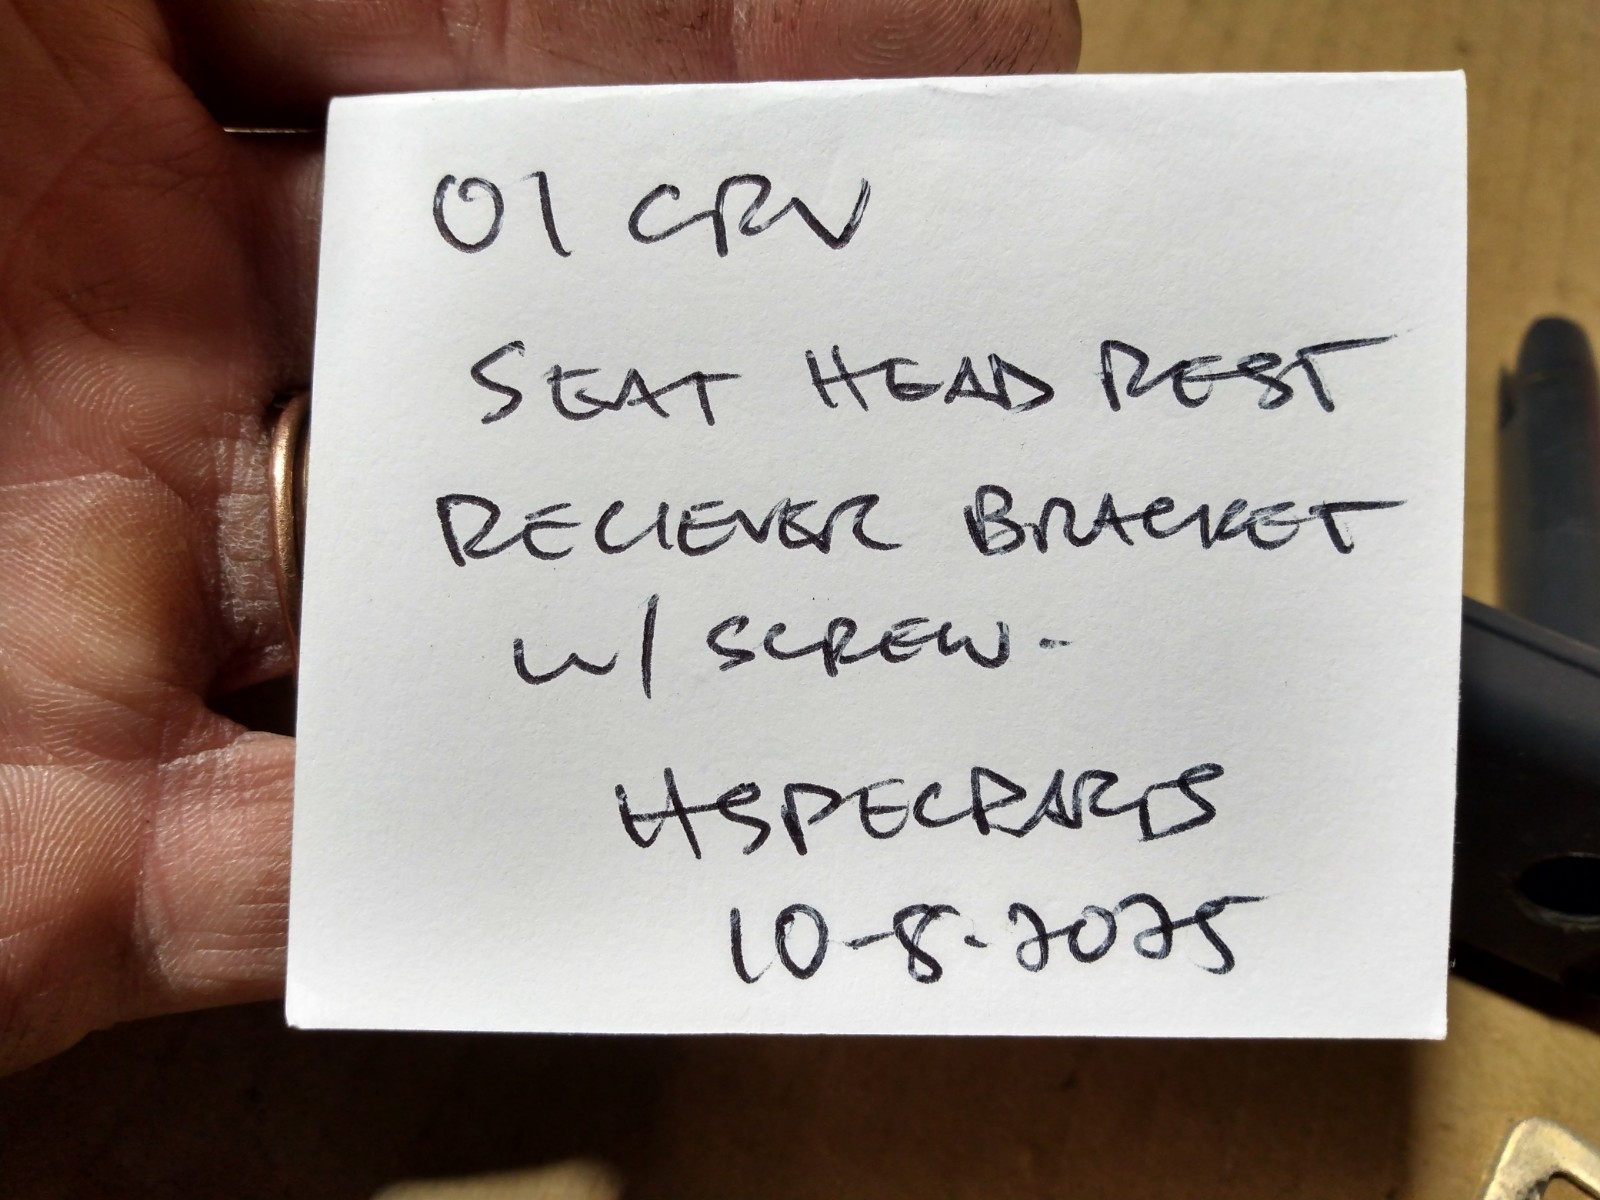 01 CRV
SEAT HEAD REST
RECIEVER BRACKET
W/ SCREW-
HSPECPARTS
10-8-2025